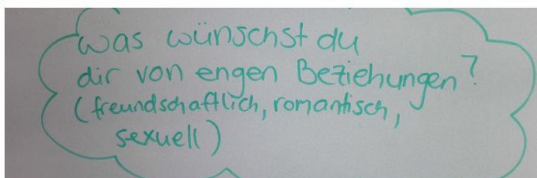 was wünschst du
dir von engen Beziehungen?
(freundschaftlich, romantisch,
sexuell)